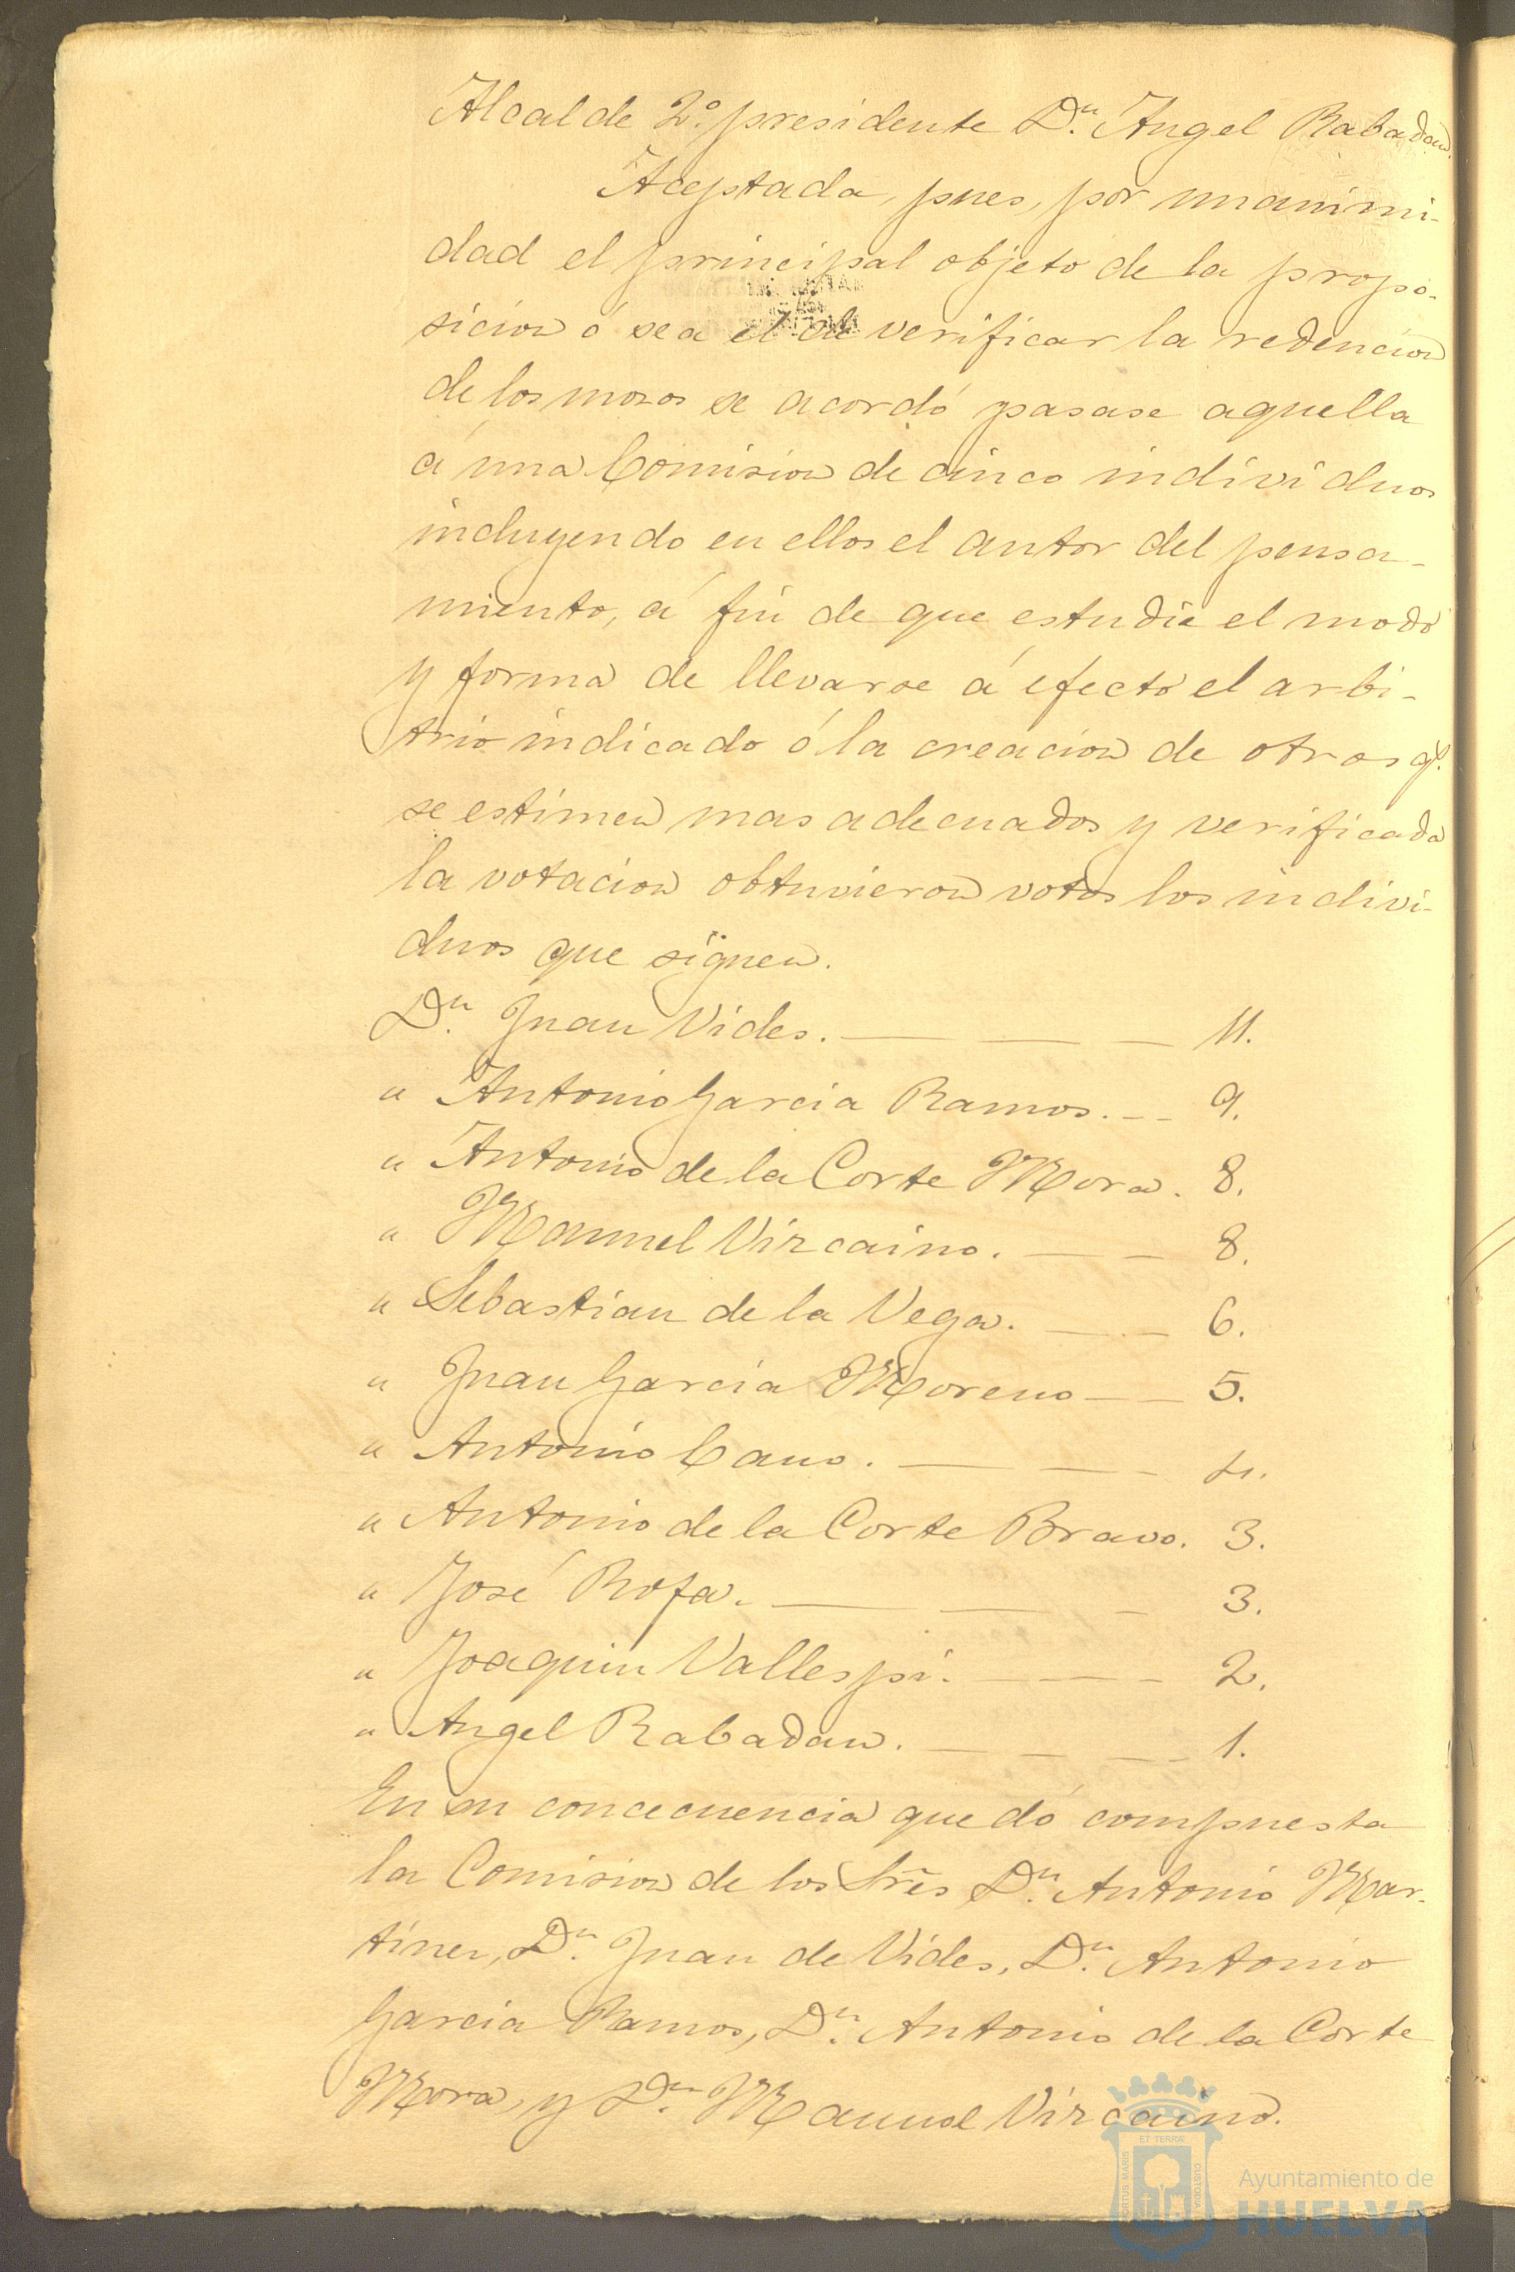 Alcalde 2.º presidente D.n Angel Rabadan.
Aceptada, pues, por unanimi-
dad el principal objeto de la propo-
sicion ó sea el de verificar la redencion
de los mozos se acordó pasase aquella
á una Comision de cinco individuos
incluyendo en ellos el autor del pensa-
miento, á fin de que estudie el modo
y forma de llevarse á efecto el arbi-
trio indicado ó la creacion de otros q.e
se estimen mas adecuados y verificada
la votacion obtuvieron votos los indivi-
duos que siguen.
D.n Juan Vides. — — — 11.
" Antonio Garcia Ramos. — — 9.
" Antonio de la Corte Mora. 8.
" Manuel Vizcaino. — — 8.
" Sebastian de la Vega. — — 6.
" Juan Garcia Moreno — — 5.
" Antonio Cano. — — — 4.
" Antonio de la Corte Bravo. 3.
" José Rofa. — — — 3.
" Joaquin Vallespi. — — — 2.
" Angel Rabadan. — — — — 1.
En su concecuencia quedó compuesta
la Comision de los Sres D.n Antonio Mar-
tinez, D.n Juan de Vides, D.n Antonio
Garcia Ramos, D.n Antonio de la Corte
Mora, y D.n Manuel Vizcaino.
PORTUS MARIS ET TERRAE CUSTODIA
Ayuntamiento de
HUELVA